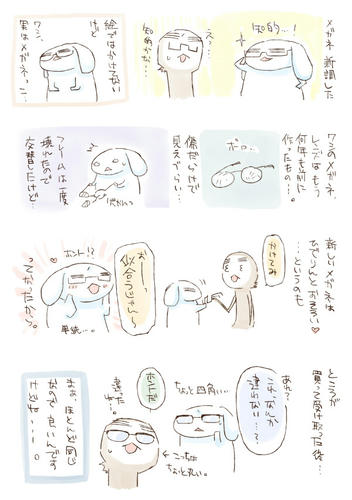 メガネ新調した
知的…!
えっ…
知的かな…
絵ではかけてない
けど
ワシ、
実はメガネっこ…
ワシのメガネ、
レンズはもう
何年も前に
作ったもの…。
ボロ…
傷だらけで
見えづらい…
フレームは一度
壊れたので
交替したけど…
新しいメガネは
ひでりんとおそろい♡
…というのも
かけてみ
おーっ
似合うじゃん〜
ホント!?
単純…。
ってったから。
ところが
買って受け取った後…
あれ?
これ、なんか
違わない…?
ちょっと四角い…
←こっちは
ちょっと丸い。
ホントだ
違ったね…
まぁ、ほとんど同じ
なので良いんです
けどね…ー。